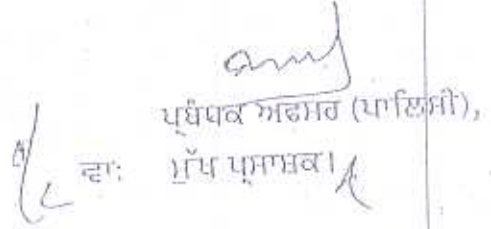 ਪ੍ਰਬੰਧਕ ਅਫਸਰ (ਪਾਲਿਸੀ),
ਵਾ: ਮੁੱਖ ਪ੍ਰਸਾਸ਼ਕ।